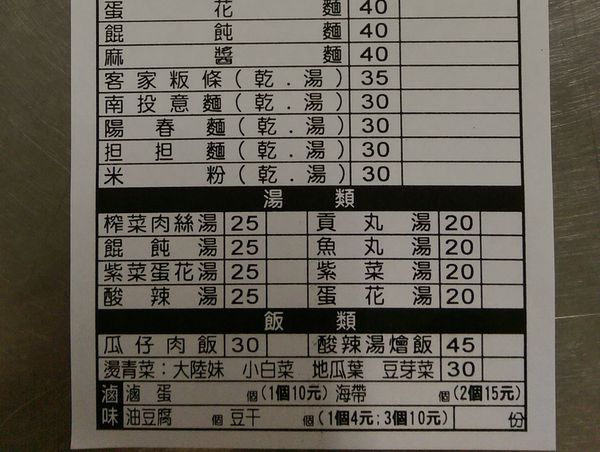 蛋花麵 40
餛飩麵 40
麻醬麵 40
客家粄條(乾.湯) 35
南投意麵(乾.湯) 30
陽春麵(乾.湯) 30
担担麵(乾.湯) 30
米粉(乾.湯) 30
湯類
榨菜肉絲湯 25 貢丸湯 20
餛飩湯 25 魚丸湯 20
紫菜蛋花湯 25 紫菜湯 20
酸辣湯 25 蛋花湯 20
飯類
瓜仔肉飯 30 酸辣湯燴飯 45
燙青菜:大陸妹 小白菜 地瓜葉 豆芽菜 30
滷味 滷蛋 個(1個10元) 海帶 個(2個15元)
油豆腐 個 豆干 個(1個4元;3個10元) 份